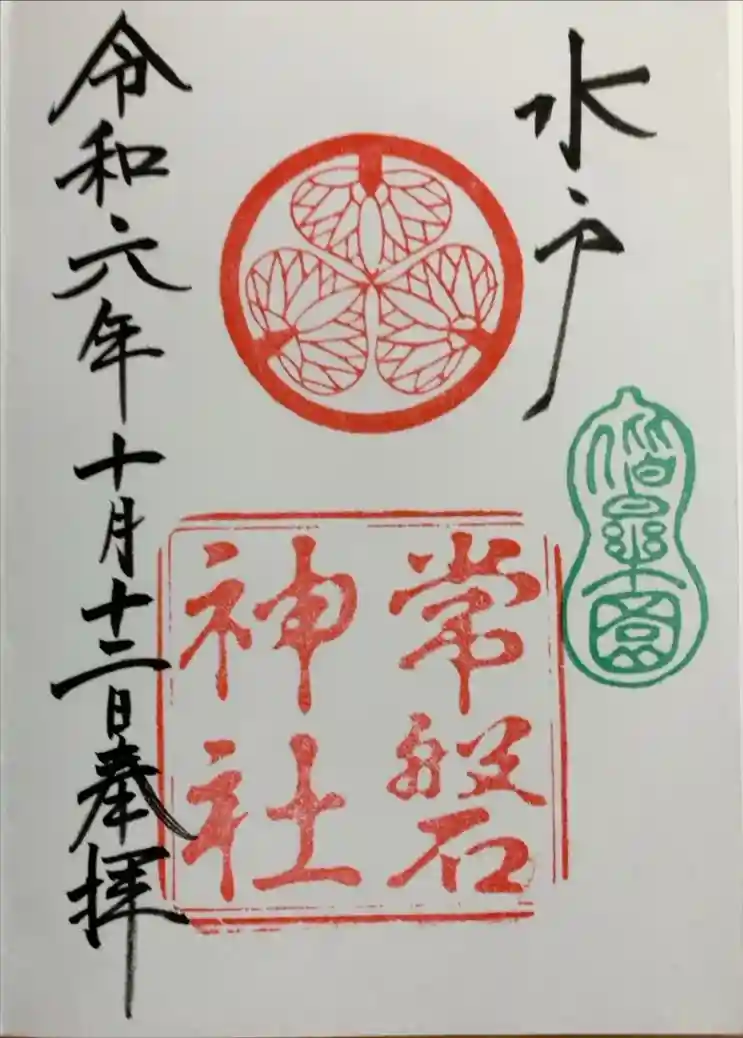 水戸
偕楽園
常磐
神社
令和六年十月十二日奉拝